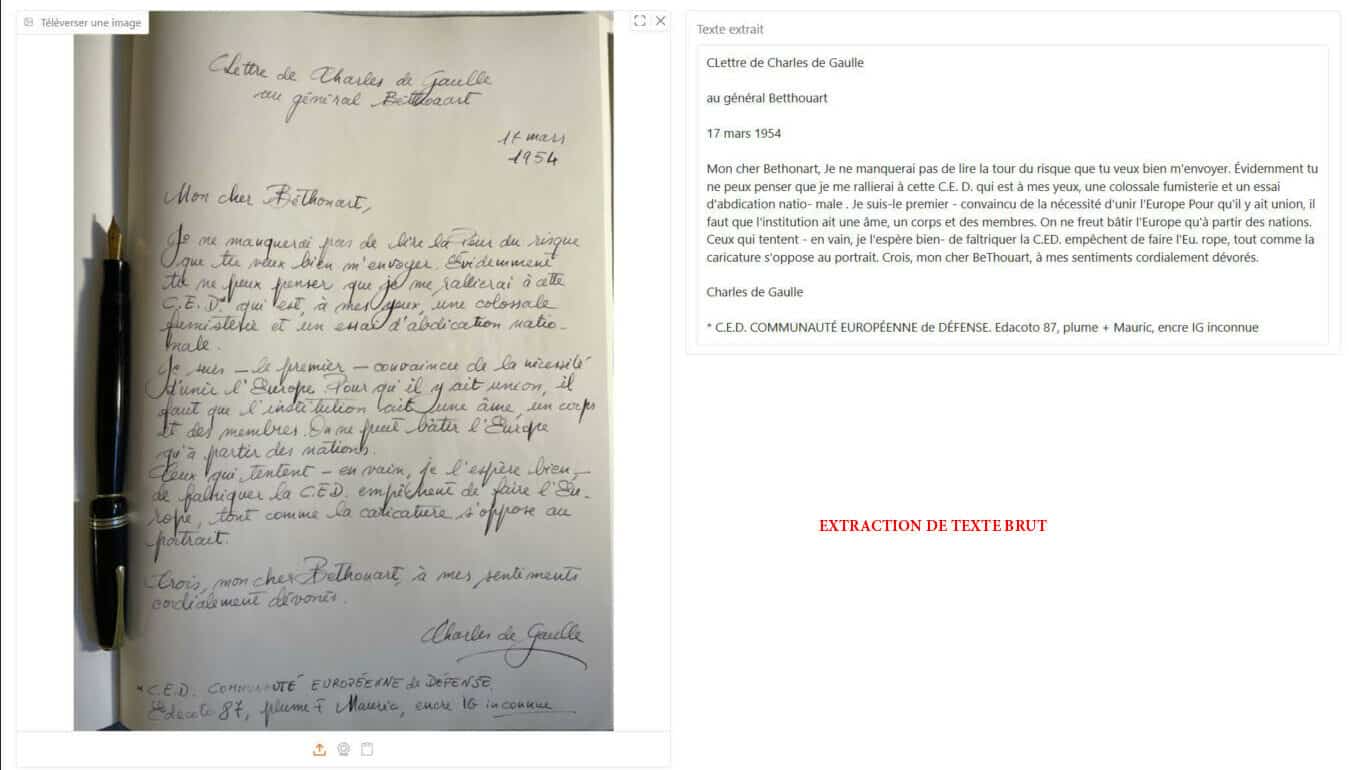 Téléverser une image
Lettre de Charles de Gaulle
au général Béthouart
17 mars
1954
Mon cher Béthouart,
Je ne manquerai pas de lire la Peur du risque
que tu veux bien m'envoyer. Évidemment
tu ne peux penser que je me rallierai à cette
C.E.D* qui est, à mes yeux, une colossale
fumisterie et un essai d'abdication natio-
nale.
Je suis – le premier – convaincu de la nécessité
d'unir l'Europe. Pour qu'il y ait union, il
faut que l'institution ait une âme, un corps
et des membres. On ne peut bâtir l'Europe
qu'à partir des nations.
Ceux qui tentent – en vain, je l'espère bien –
de fabriquer la C.E.D. empêchent de faire l'Eu-
rope, tout comme la caricature s'oppose au
portrait.
Crois, mon cher Béthouart, à mes sentiments
cordialement dévoués.
Charles de Gaulle
* C.E.D. COMMUNAUTÉ EUROPÉENNE de DÉFENSE.
Edacoto 87, plume F Mauric, encre IG inconnue
Texte extrait
CLettre de Charles de Gaulle
au général Betthouart
17 mars 1954
Mon cher Bethonart, Je ne manquerai pas de lire la tour du risque que tu veux bien m'envoyer. Évidemment tu
ne peux penser que je me rallierai à cette C.E. D. qui est à mes yeux, une colossale fumisterie et un essai
d'abdication natio- male . Je suis-le premier - convaincu de la nécessité d'unir l'Europe Pour qu'il y ait union, il
faut que l'institution ait une âme, un corps et des membres. On ne freut bâtir l'Europe qu'à partir des nations.
Ceux qui tentent - en vain, je l'espère bien- de faltriquer la C.ED. empêchent de faire l'Eu. rope, tout comme la
caricature s'oppose au portrait. Crois, mon cher BeThouart, à mes sentiments cordialement dévorés.
Charles de Gaulle
* C.E.D. COMMUNAUTÉ EUROPÉENNE de DÉFENSE. Edacoto 87, plume + Mauric, encre IG inconnue
EXTRACTION DE TEXTE BRUT